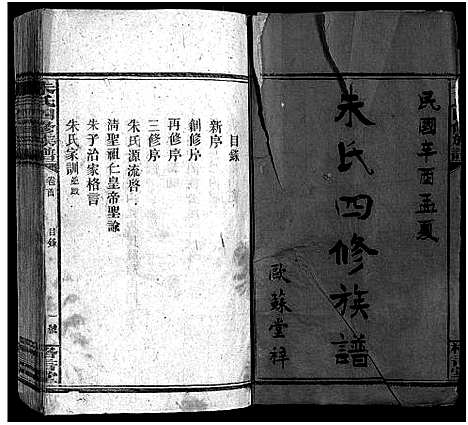 民國辛酉孟夏
朱氏四修族譜
歐蘇堂梓
目錄
新序
創修序
再修序
三修序
朱氏源流啓
清聖祖仁皇帝聖諭
朱子治家格言
朱氏家訓
朱氏四修族譜
卷首
目錄
一